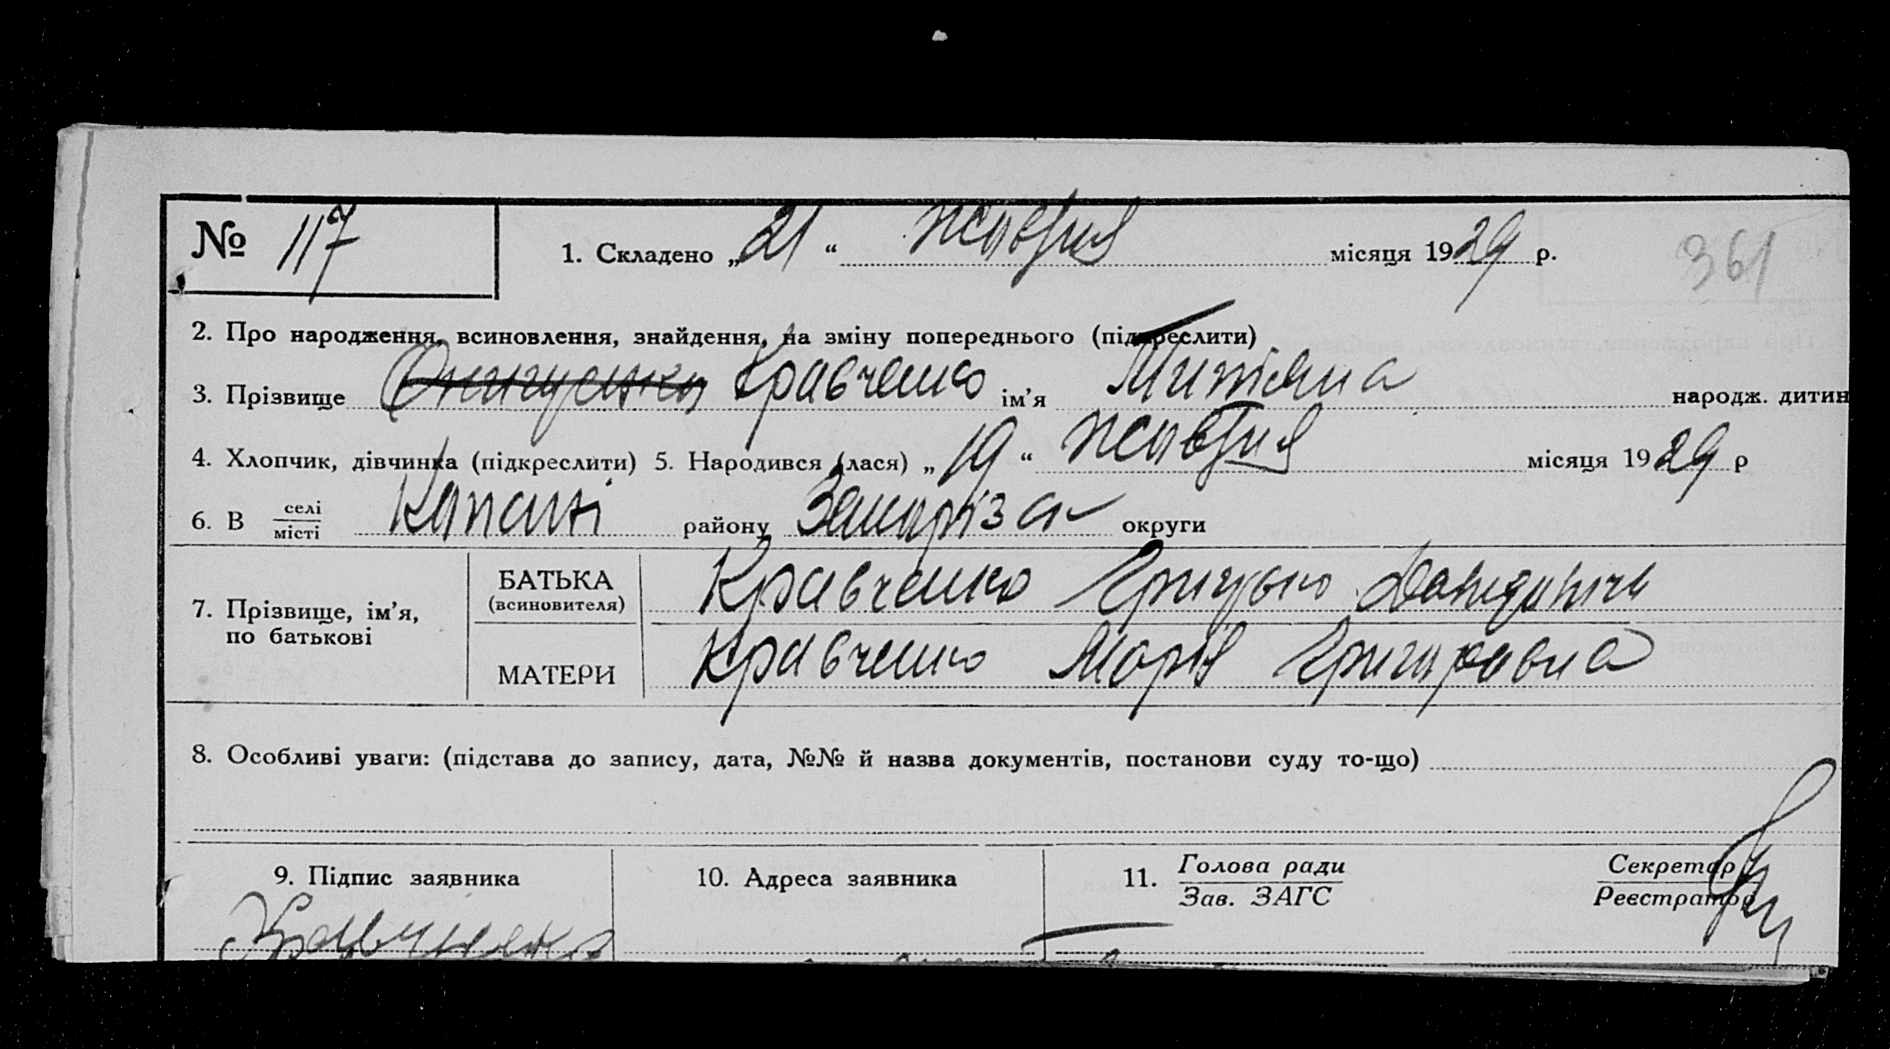 № 117 1. Складено „21“ жовтня місяця 1929 р. 361
2. Про народження, всиновлення, знайдення, на зміну попереднього (підкреслити)
3. Прізвище Кравченко ім’я народж. дитин
4. Хлопчик, дівчинка (підкреслити) 5. Народився (лася) „19“ жовтня місяця 1929 р
6. В селі
місті
району округи
7. Прізвище, ім’я,
по батькові
БАТЬКА
(всиновителя)
Кравченко Грицько Давидович
МАТЕРИ
Кравченко Марія Григоровна
8. Особливі уваги: (підстава до запису, дата, №№ й назва документів, постанови суду то-що)
9. Підпис заявника
10. Адреса заявника
11. Голова ради
Зав. ЗАГС
Секретар
Реєстратор